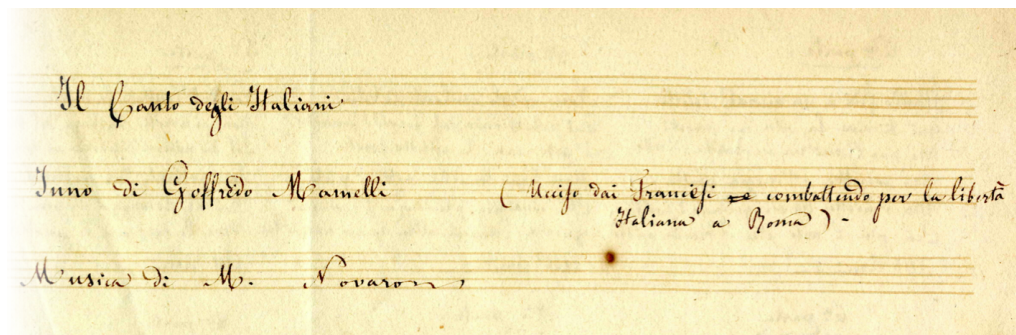 Il Canto degli Italiani
Inno di Goffredo Mamelli (Ucciso dai Francesi combattendo per la libertà
Italiana a Roma) -
Musica di M. Novaro